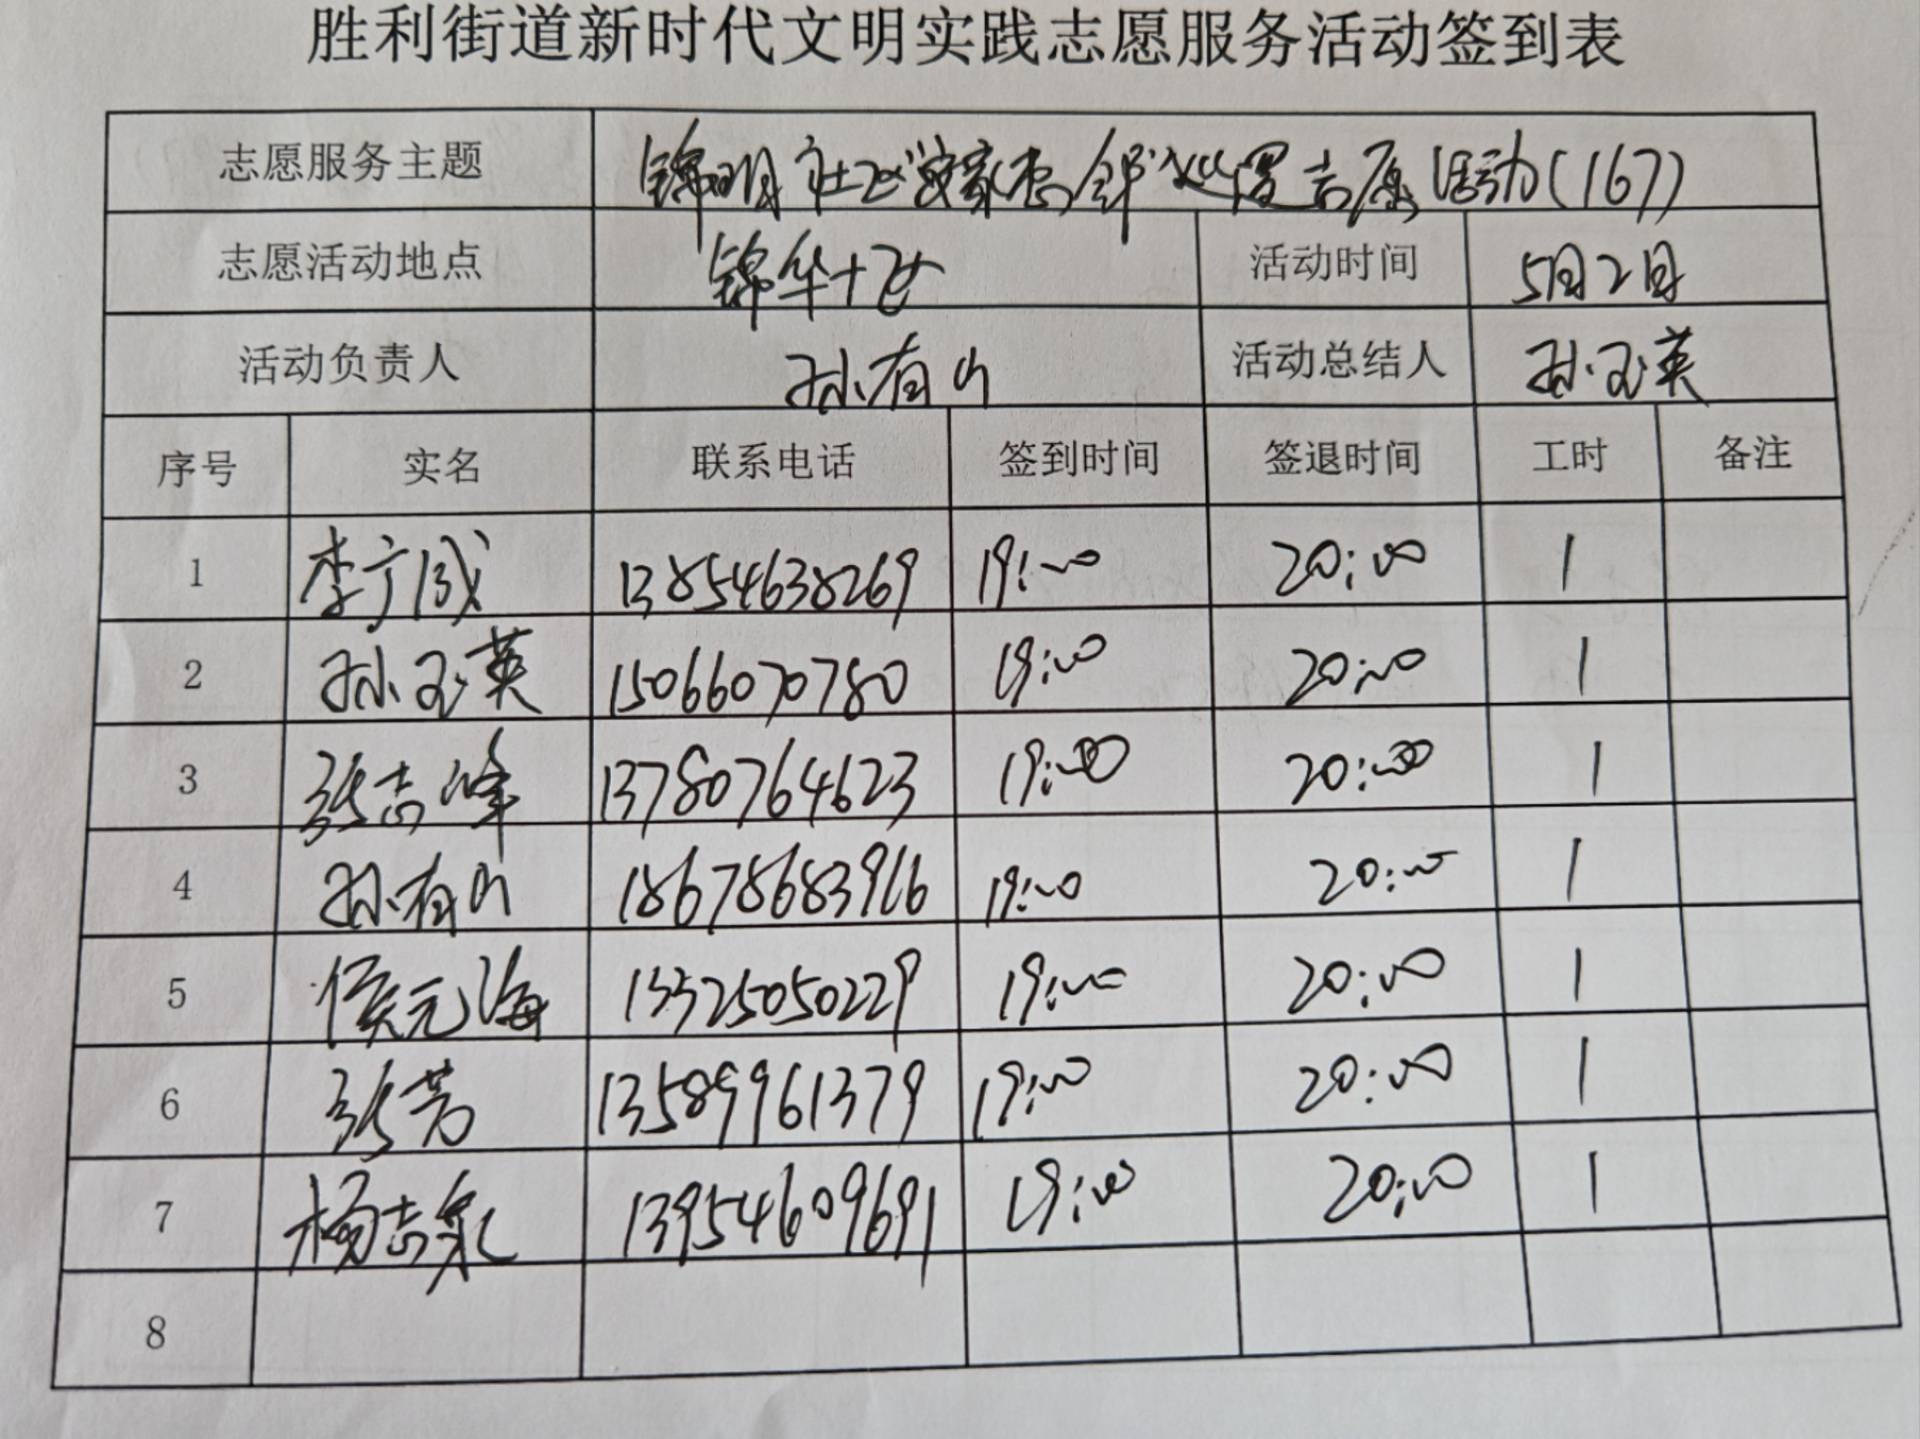 胜利街道新时代文明实践志愿服务活动签到表
志愿服务主题 锦明社区 志愿活动(167)
志愿活动地点 锦华十区 活动时间 5月2日
活动负责人 孙有山 活动总结人 孙玉英
序号 实名 联系电话 签到时间 签退时间 工时 备注
1 李广成 13854638269 19:00 20:00 1
2 孙玉英 15066070780 19:00 20:00 1
3 张志峰 13780764623 19:00 20:00 1
4 孙有山 18678683966 19:00 20:00 1
5 侯元海 13325050229 19:00 20:00 1
6 张芳 13589961379 19:00 20:00 1
7 杨志泉 13954609691 19:00 20:00 1
8